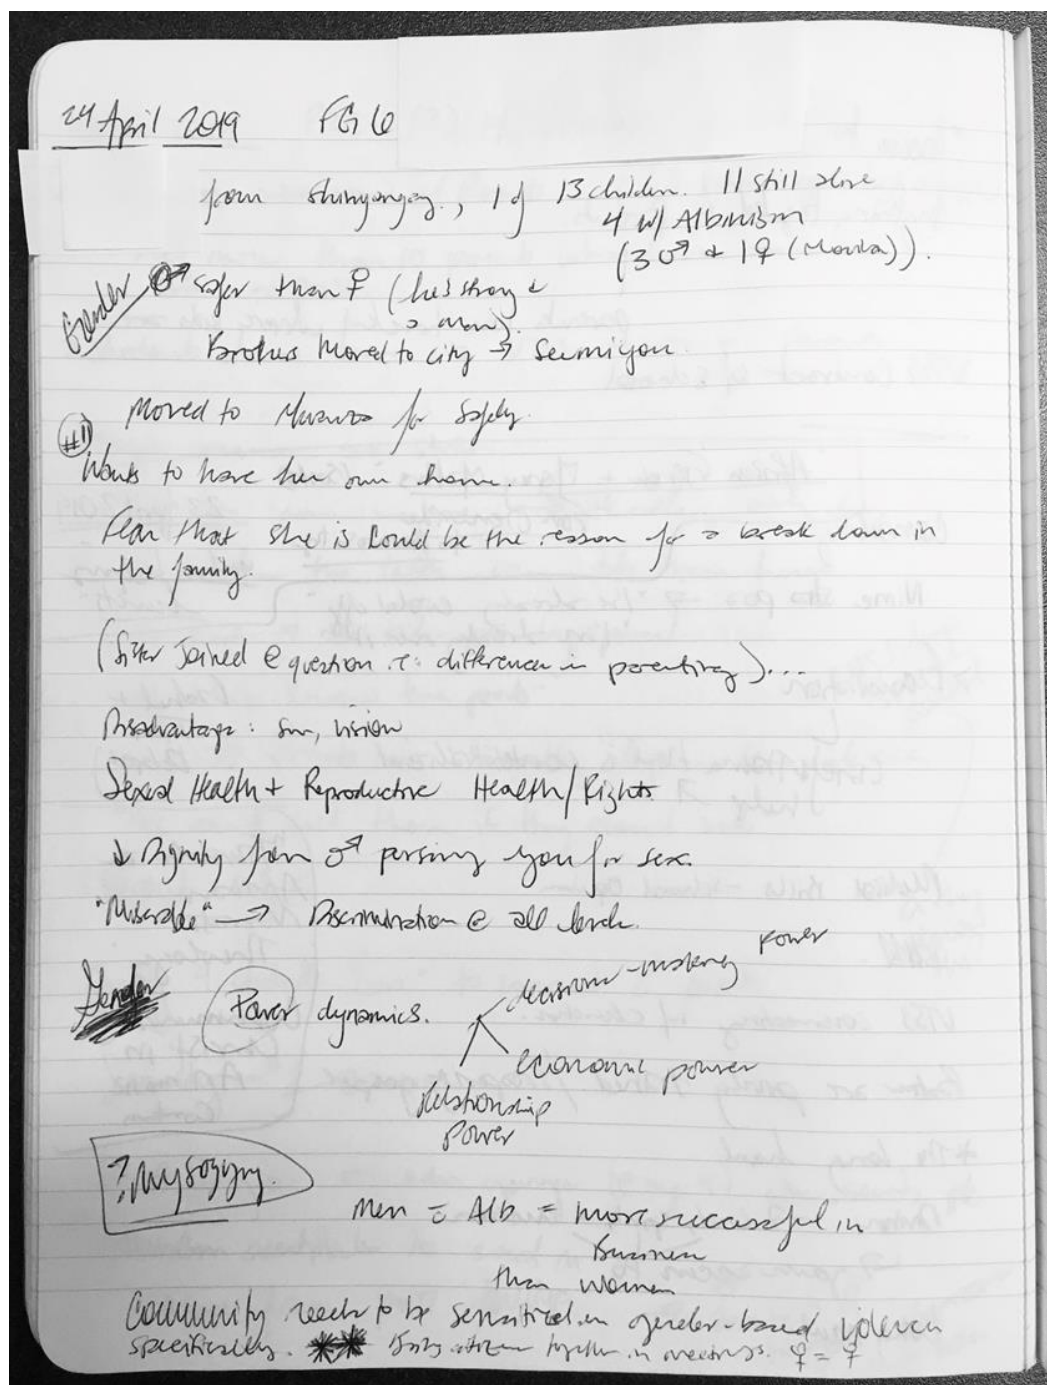 24 April 2019 FG 6
from Shinyanga., 1 of 13 children. 11 still alive
4 w/ Albinism
(3 ♂ + 1 ♀ ()).
Gender ♂ safer than ♀ (he's strong +
a man).
Brothers Moved to city →
#11 Moved to Mwanza for Safety.
Wants to have her own home.
Fear that she is Could be the reason for a break down in
the family.
(Sister Joined @ question re: difference in parenting)...
Disadvantage: sun, vision
Sexual Health + Reproductive Health/Rights
↓ Dignity from ♂ pursing you for sex.
"Miserable" → Discrimination @ all levels.
Gender Power dynamics.
decision-making power
economic power
Relationship
Power
? Mysogyny.
Men c̄ Alb = more successful in
Business
than women
Community needs to be sensitized on gender-based violence
specifically. ** Bring citizens together in meetings. ♀ = ♀